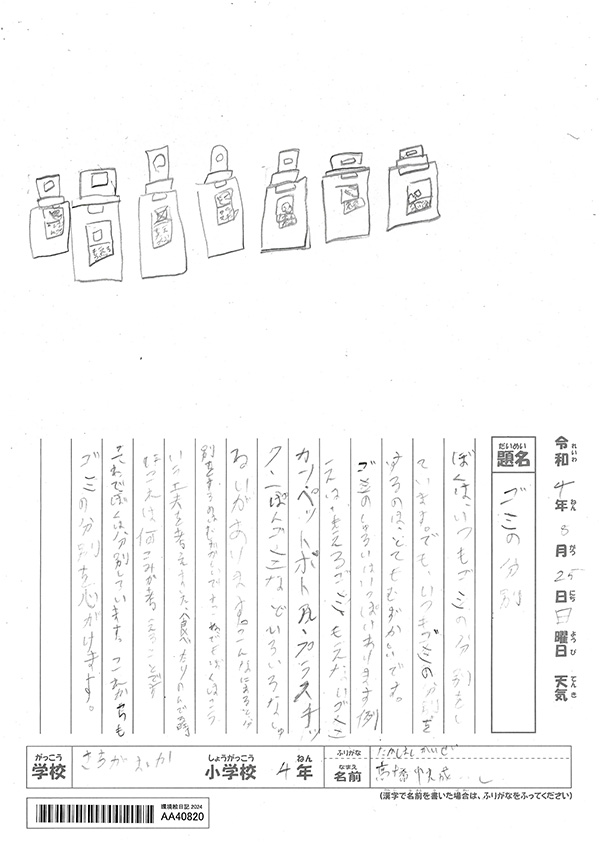 令和4年8月25日日曜日 天気
れいわ ねん がつ にち ようび てんき
だいめい
題名
ゴミの分別
ぼくは、いつもゴミの分別をし
ています。でも、いつもゴミの分別を
するのは、とてもむずかしいです。
ゴミのしゅるいはいっぱいあります例
えばもえるゴミ、もえないゴミ
カン・ペットボトル・プラスチッ
ク・こなどいろいろなしゅ
るいがあります。こんなにあると
ぼくはこう
いう工夫を考えました、食べたりのんで時
はこれは何ごみか考えることです
これでぼくは分別しています。これからも
ゴミの分別を心がけます。
がっこう
学校
しょうがっこう
小学校
4年
ねん
ふりがな
なまえ
名前
高橋
(漢字で名前を書いた場合は、ふりがなをふってください)
環境絵日記 2024
AA40820